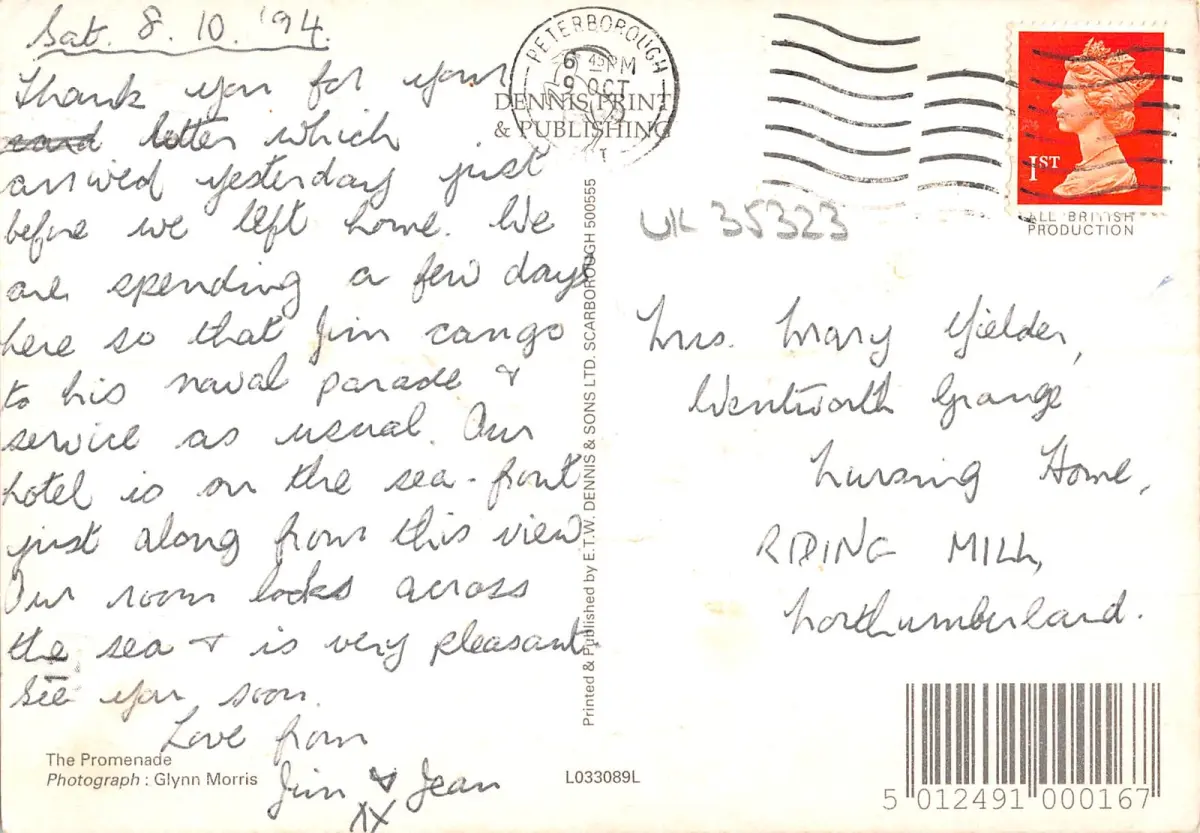 Sat. 8. 10. '94.
Thank you for your
card letter which
arrived yesterday just
before we left home. We
are spending a few days
here so that Jim can go
to his naval parade &
service as usual. Our
hotel is on the sea-front
just along from this view
Our room looks across
the sea & is very pleasant.
See you soon.
Love from
Jim & Jean
XX
The Promenade
Photograph : Glynn Morris
DENNIS PRINT
& PUBLISHING
Printed & Published by E.T.W. DENNIS & SONS LTD. SCARBOROUGH 500555
L033089L
PETERBOROUGH
6 45PM
9 OCT
1ST
ALL BRITISH
PRODUCTION
UK 35323
Mrs. Mary Yielder,
Wentworth Grange
Nursing Home,
RIDING MILL,
Northumberland.
5 012491 000167